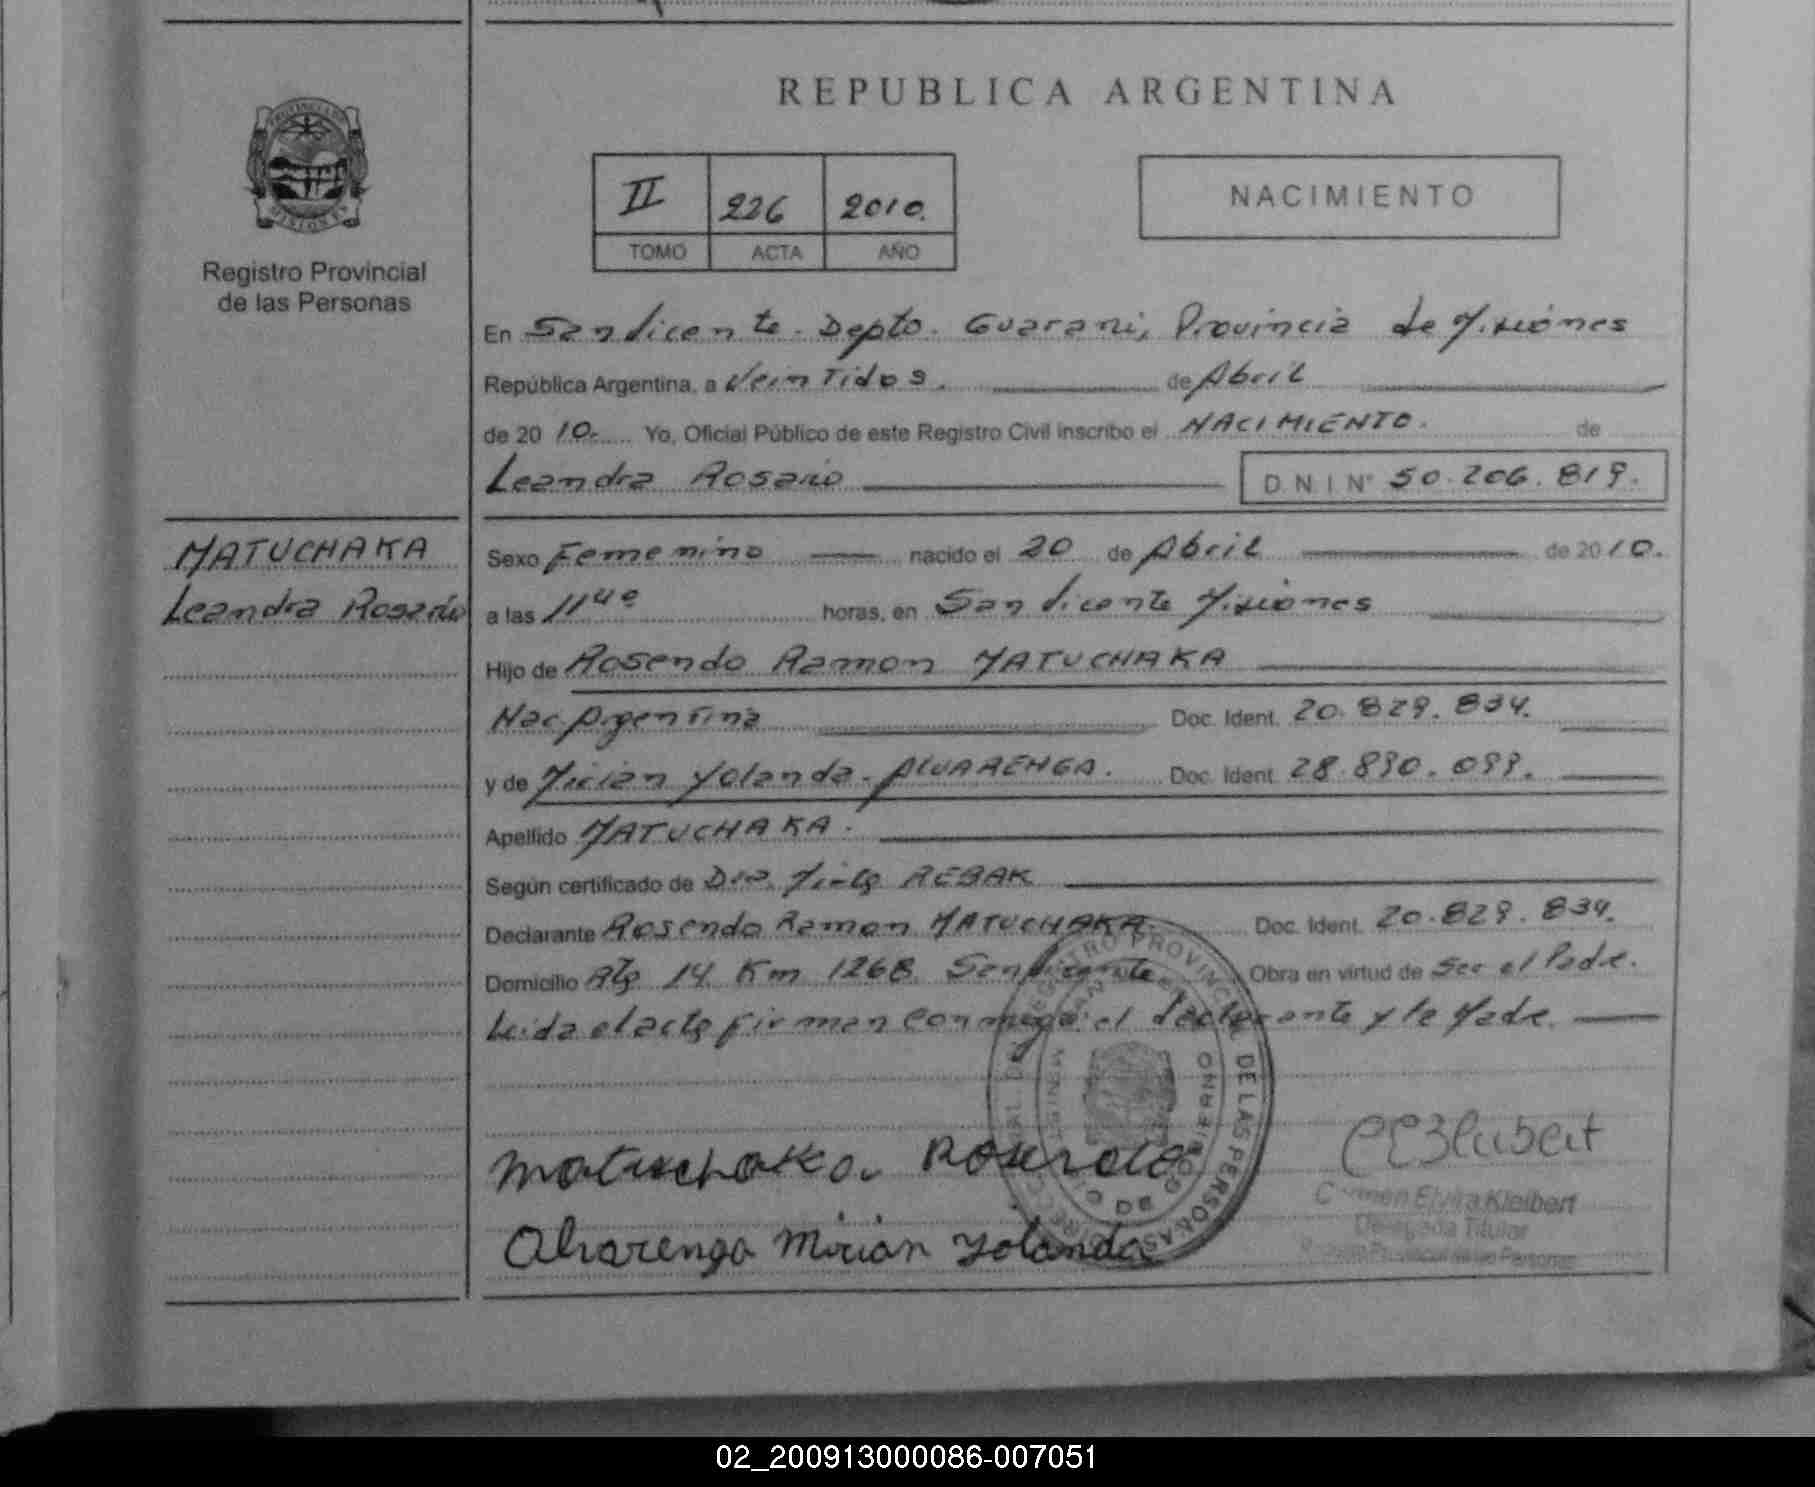 REPUBLICA ARGENTINA
PROVINCIA DE
MISIONES
Registro Provincial
de las Personas
II 226 2010.
TOMO ACTA AÑO
NACIMIENTO
En San Vicente. Depto. Guarani, Provincia de Misiones
República Argentina, a Veintidos. de Abril
de 20 10. Yo, Oficial Público de este Registro Civil inscribo el NACIMIENTO. de
Leandra Rosario D.N.I. N° 50.206.819.
MATUCHAKA
Leandra Rosario
Sexo Femenino nacido el 20 de Abril de 2010.
a las 11 40 horas, en San Vicente Misiones
Hijo de Rosendo Ramon MATUCHAKA
Nac. Argentina Doc. Ident. 20.829.834.
y de Mirian Yolanda. ALVARENGA. Doc. Ident. 28.890.099.
Apellido MATUCHAKA.
Según certificado de Dra. REBAK
Declarante Rosendo Ramon MATUCHAKA. Doc. Ident. 20.829.834.
Domicilio Rta 14 Km 1268 San Vicente Obra en virtud de Ser el Padre.
Leida el acta firman conmigo el declarante y la Madre.
REGISTRO PROVINCIAL DE LAS PERSONAS
Matuchaka. Rosendo
Alvarenga Mirian Yolanda
Carmen Elvira Kleibert
Delegada Titular
Registro Provincial de las Personas
02_200913000086-007051